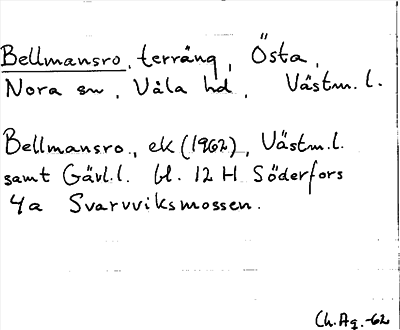 Bellmansro, terräng, Östa,
Nora sn, Våla hd, Västm. l.
Bellmansro., ek (1962), Västm.l.
samt Gävl.l. bl. 12 H Söderfors
4a Svarvviksmossen.
Ch.Ag.-62